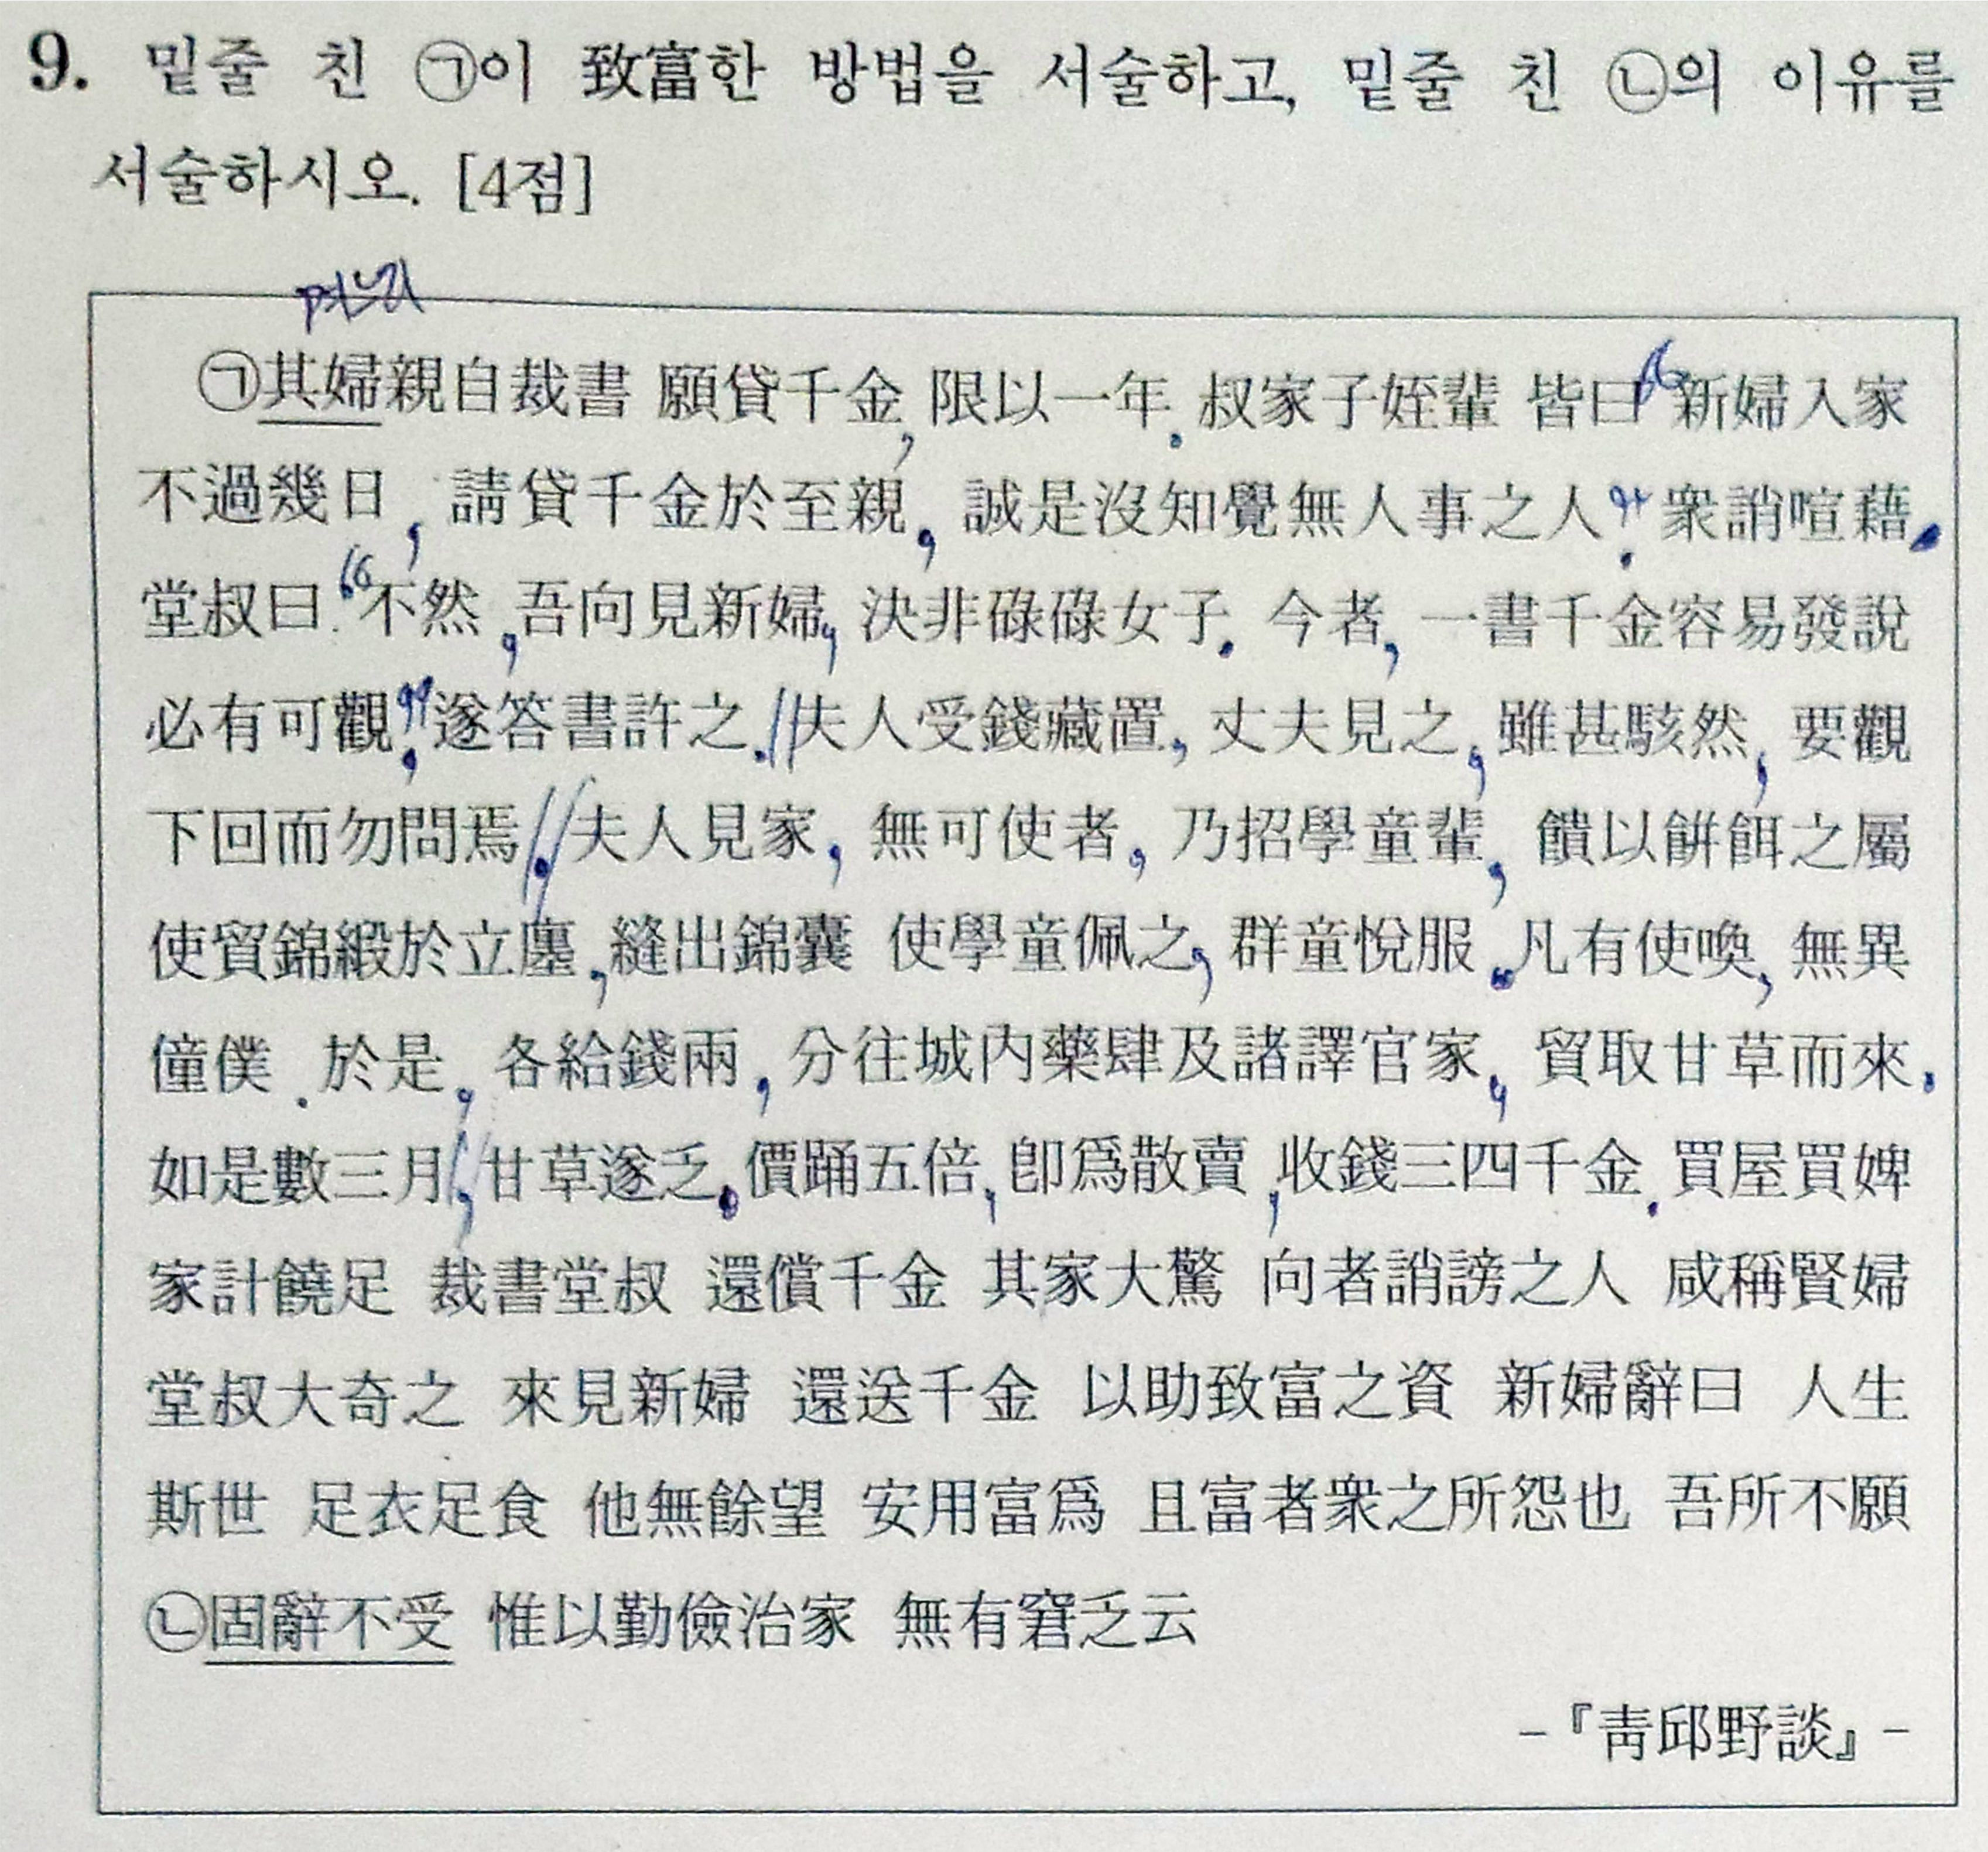 9. 밑줄 친 ㉠이 致富한 방법을 서술하고, 밑줄 친 ㉡의 이유를
서술하시오. [4점]
며느리
㉠其婦親自裁書 願貸千金, 限以一年. 叔家子姪輩 皆曰“新婦入家
不過幾日, 請貸千金於至親, 誠是沒知覺無人事之人”. 衆誚喧藉.
堂叔曰“不然, 吾向見新婦, 決非碌碌女子. 今者, 一書千金容易發說
必有可觀”, 遂答書許之.//夫人受錢藏置, 丈夫見之, 雖甚駭然, 要觀
下回而勿問焉.//夫人見家, 無可使者, 乃招學童輩, 饋以餠餌之屬
使貿錦緞於立廛, 縫出錦囊 使學童佩之, 群童悅服. 凡有使喚, 無異
僮僕. 於是, 各給錢兩, 分往城內藥肆及諸譯官家, 貿取甘草而來,
如是數三月,// 甘草遂乏. 價踊五倍, 卽爲散賣, 收錢三四千金. 買屋買婢
家計饒足 裁書堂叔 還償千金 其家大驚 向者誚謗之人 咸稱賢婦
堂叔大奇之 來見新婦 還送千金 以助致富之資 新婦辭曰 人生
斯世 足衣足食 他無餘望 安用富爲 且富者衆之所怨也 吾所不願
㉡固辭不受 惟以勤儉治家 無有窘乏云
-『靑邱野談』-